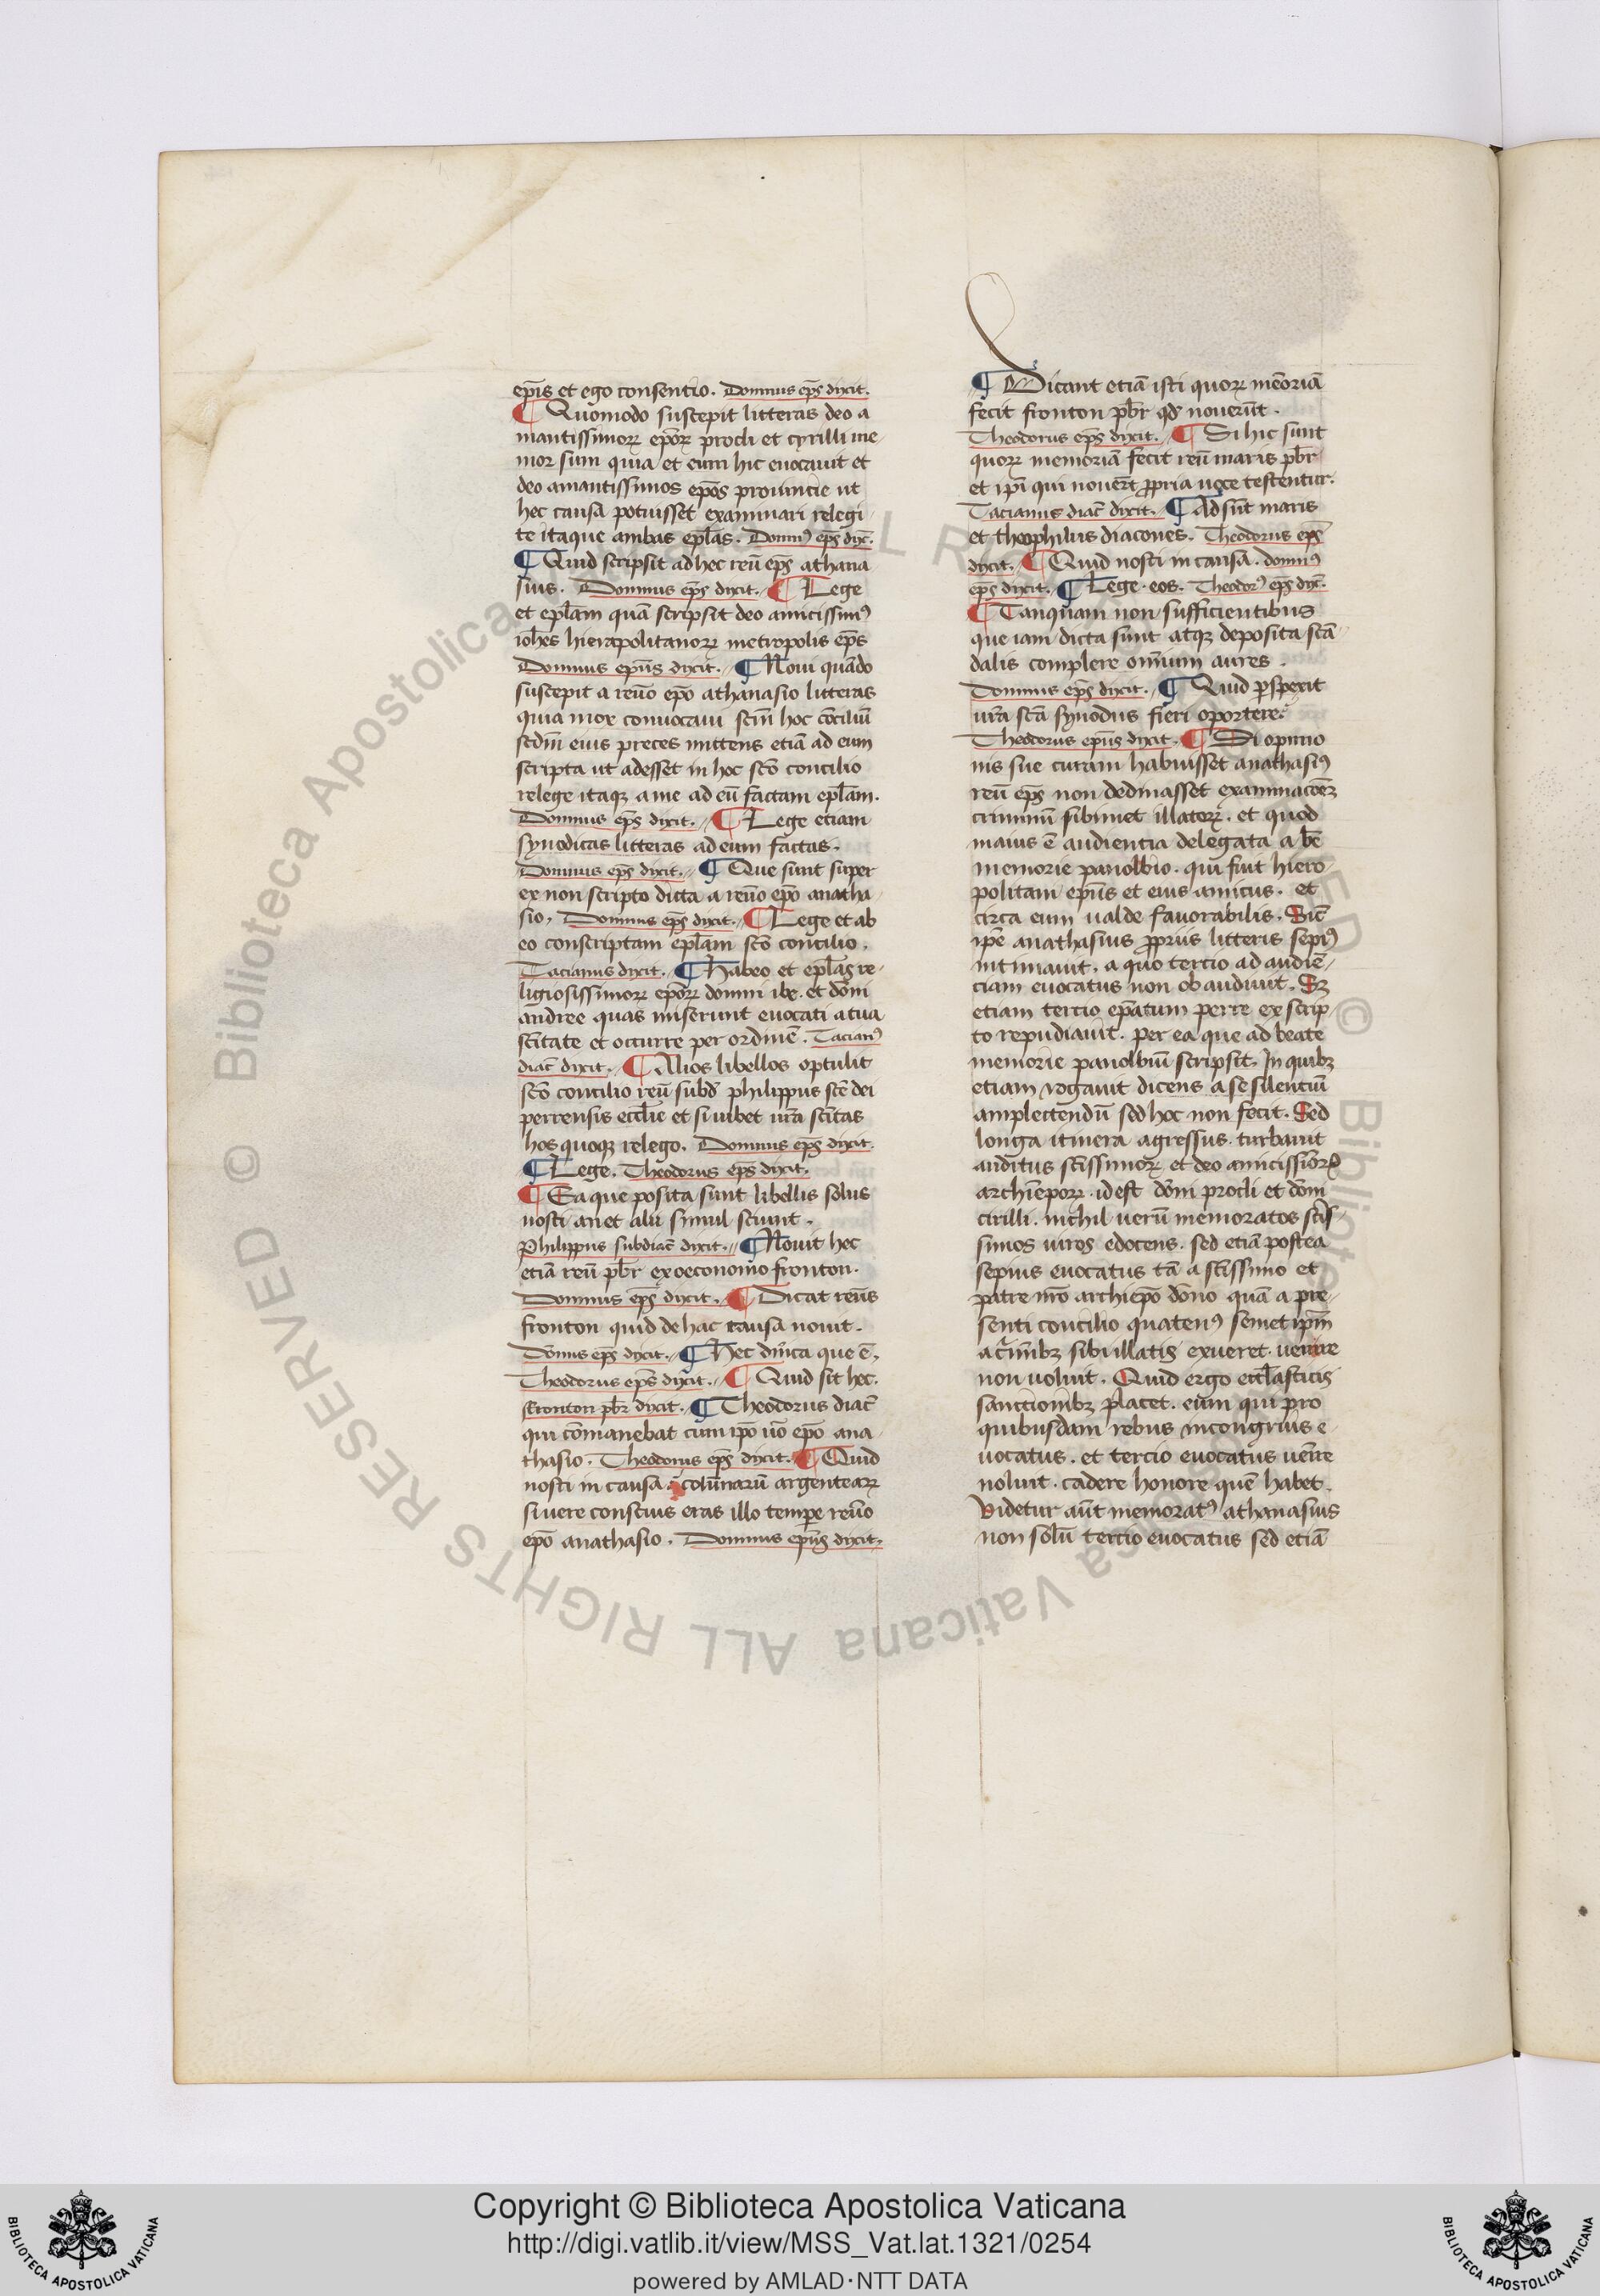 ep̄is et ego consentio. Domnus ep̄s dixit.
¶ Quomodo suscepit litteras deo a
mantissimoꝝ ep̄oꝝ procli et cyrilli me-
mor sum quia et eum hic euocauit et
deo amantissimos ep̄os prouincie ut
hec causa potuisset examinari relegi
te itaque ambas ep̄las. Domnꝰ ep̄s dix̄.
¶ Quid scripsit ad hec reū ep̄s athana
sius. Domnus ep̄s dixit. ¶ Lege
et ep̄lam quā scripsit deo amicissimꝰ
ioh̄es hierapolitanoꝝ metropolis ep̄s
Domnus ep̄us dixit. ¶ Noui quādo
suscepit a reuō ep̄o athanasio litteras
quia mox conuocaui sc̄m hoc cōciliū
sc̄dm̄ eius preces mittens etiā ad eum
scripta ut adesset in hoc sc̄o concilio
relege itaqꝫ a me ad eū factam ep̄lam.
Domnus ep̄s dixit. ¶ Lege etiam
synodicas litteras ad eum factas.
Domnus ep̄s dixit. ¶ Que sunt super
ex non scripto dicta a reuō ep̄o anatha
sio. Domnus ep̄s dixit. ¶ Lege et ab
eo conscriptam ep̄lam sc̄o concilio.
Tacianus dixit. ¶ Habeo et ep̄las re-
ligiosissimoꝝ ep̄oꝝ domni ibe. et dōni
andree quas miserunt euocati a tua
sc̄itate et occurre per ordinē. Tacianꝰ
diac̄ dixit. ¶ Alios libellos optulit
sc̄o concilio reū subd̄ philippus sc̄e dei
perrensis eccl̄ie et si iubet ur̄a sc̄itas
hos quoqꝫ relego. Domnus ep̄s dixit.
¶ Lege. Theodorus ep̄s dixit.
¶ Ea que posita sunt libellis solus
nosti an et alii simul sciunt.
Philippus subdiac̄ dixit. ¶ Nouit hec
etiā reū pb̄r ex oeconomo fronton.
Domnus ep̄s dixit. ¶ Dicat reūs
fronton quid de hac causa nouit.
Dōnus ep̄s dixit. ¶ Hec dn̄ica que ē.
Theodorus ep̄s dixit. ¶ Quid sit hec.
Fronton pb̄r dixit. ¶ Theodorus diac̄
qui cōmanebat cum ip̄o uō ep̄o ana
thasio. Theodorus ep̄s dixit. ¶ Quid
nosti in causa colūnarū argenteaꝝ
si uere conscius eras illo tempe reuō
ep̄o anathasio. Domnus ep̄us dixit.
¶ Dicant etiā isti quoꝝ memoriā
fecit fronton pb̄r qd̄ nouerūt.
Theodorus ep̄s dixit. ¶ Si hic sunt
quoꝝ memoriā fecit reū maris pb̄r
et ip̄i qui nouer̄t ꝓpria uoce testentur.
Tacianus diac̄ dixit. ¶ Adsūt maris
et theophilus diacones. Theodorus ep̄s
dixit. ¶ Quid nosti in causa. domnꝰ
ep̄s dixit. ¶ Lege eos. Theodorꝰ ep̄s dix̄.
¶ Tanquam non sufficientibus
que iam dicta sunt atqꝫ deposita scā
dalis complere omnium aures.
Domnus ep̄s dixit. ¶ Quid ꝑspexit
ur̄a sc̄a synodus fieri oportere.
Theodorus ep̄us dixit. ¶ Si opinio
nis sue curam habuisset anathasiꝰ
reū ep̄s non declinasset examinacōēꝫ
criminū sibimet illatoꝝ. et quod
maius ē audientia delegata a be
memorie panolbio. qui fuit hiero
politam ep̄us et eius amicus. et
circa eum ualde fauorabilis. Sic̄
ip̄e anathasius ꝓpriis litteris sepiꝰ
intimauit. a quo tercio ad audiē-
ciam euocatus non obaudiuit. Sꝫ
etiam tercio ep̄atum perre ex scrip-
to repudiauit. per ea que ad beate
memorie panolbiū scripsit. In quibꝫ
etiam rogauit dicens a se silentiū
amplectendū sed hoc non fecit. Sed
longa itinera agressus. turbauit
auditus sc̄issimoꝝ et deo amicissīoꝝ
archiep̄oꝝ. id est dōni procli et dōni
cirilli. nichil uerū memoratos sc̄is-
simos uiros edocens. sed etiā postea
sepius euocatus tā a sc̄issimo et
patre nr̄o archiep̄o dōno quā a pre-
senti concilio quatenꝰ semetip̄m
a crīnibꝫ sibi illatis exueret. uenire
non uoluit. Quid ergo eccl̄iasticis
sanctionibꝫ placet. eum qui pro
quibusdam rebus incongruis e-
uocatus. et tercio euocatus uenire
noluit. cadere honore quē habet.
Videtur aūt memoratꝰ athanasius
non solū tercio euocatus sed etiā
© Biblioteca Apostolica Vaticana ALL RIGHTS RESERVED
Copyright © Biblioteca Apostolica Vaticana
http://digi.vatlib.it/view/MSS_Vat.lat.1321/0254
powered by AMLAD·NTT DATA
BIBLIOTECA APOSTOLICA VATICANA
BIBLIOTECA APOSTOLICA VATICANA